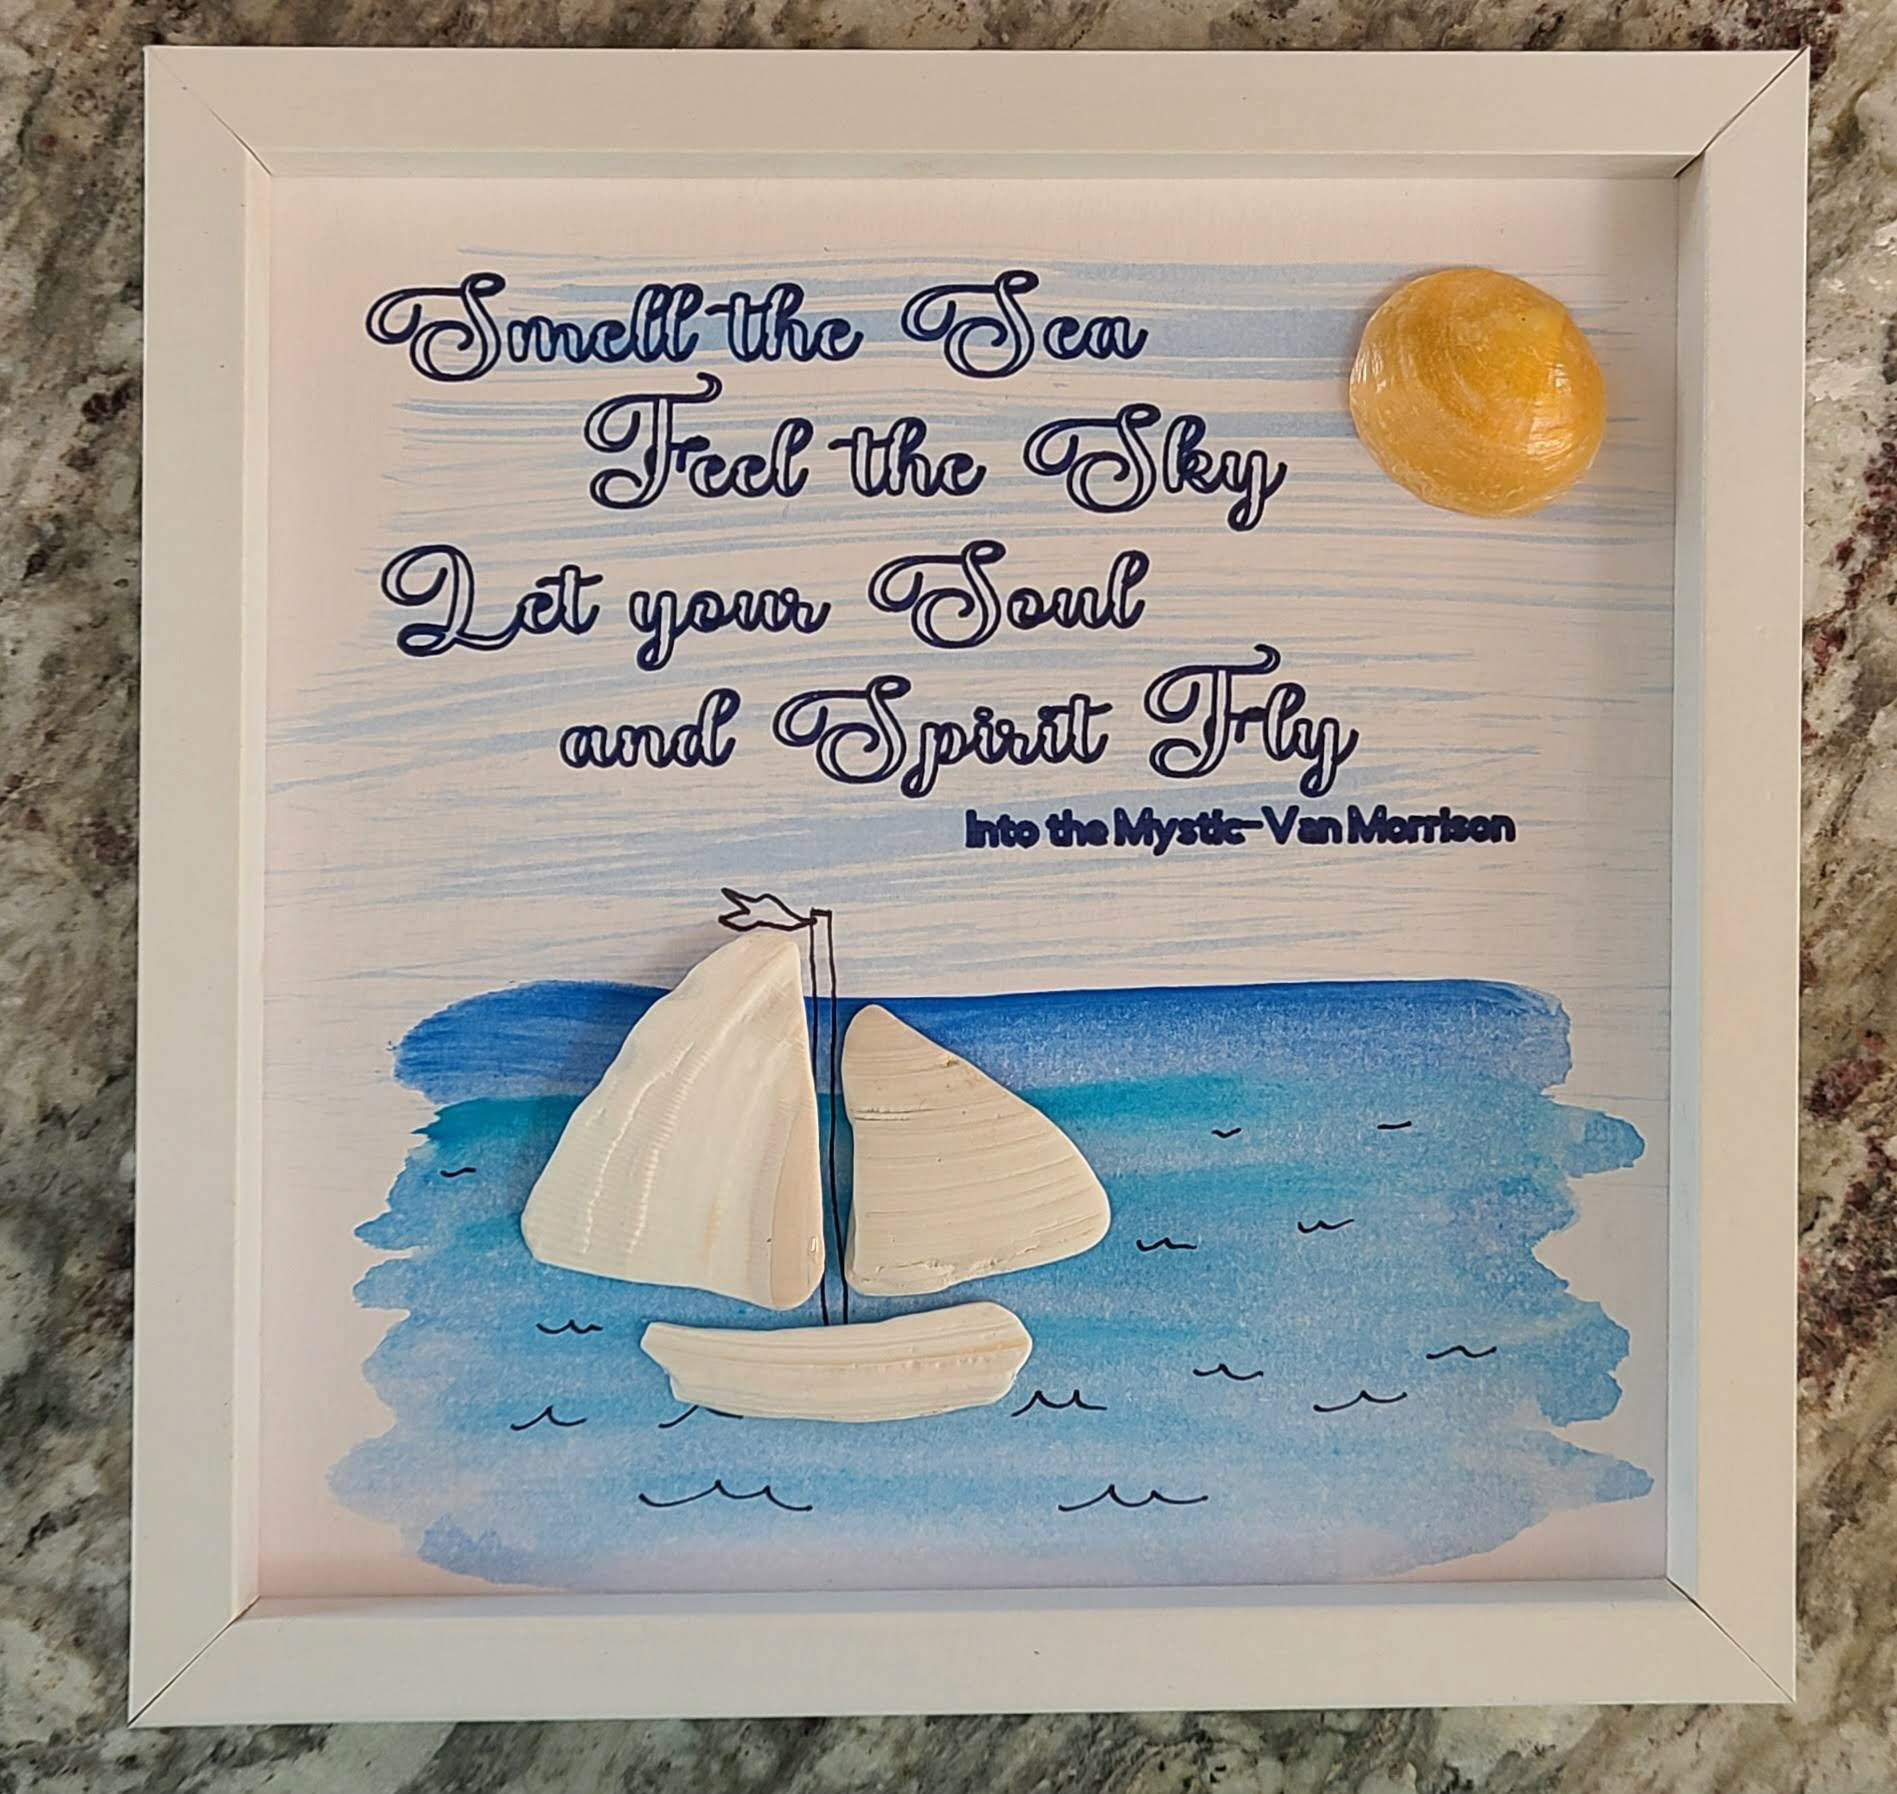 Smell the Sea
Feel the Sky
Let your Soul
and Spirit Fly
Into the Mystic-Van Morrison